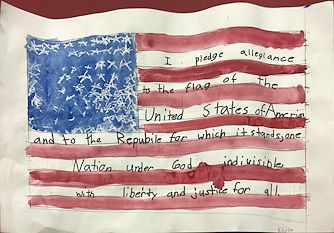 I pledge allegiance
to the flag of the
United States of America
and to the Repubile for which it stands, one
Nation under God indiuisible,
with liberty and justice for all.